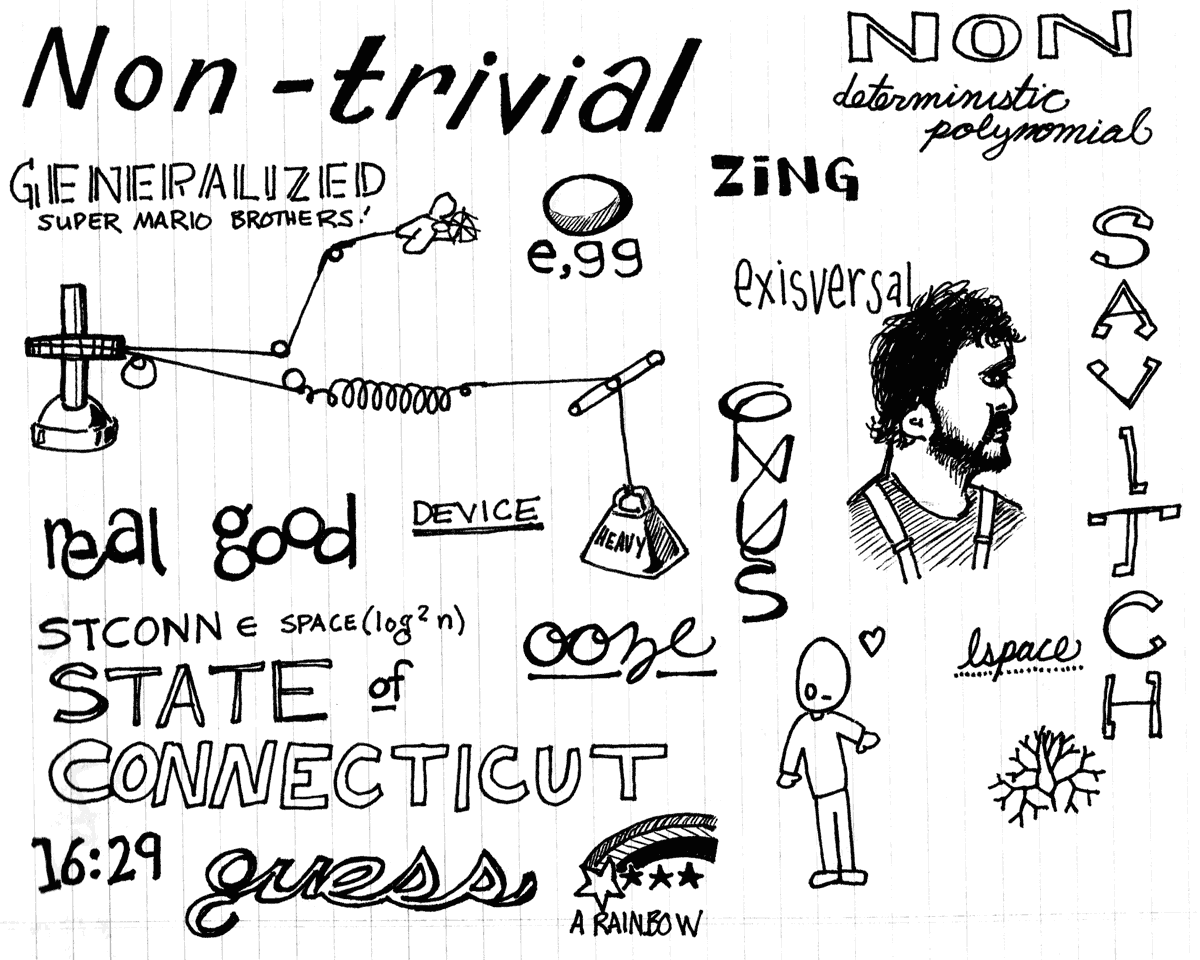 Non-trivial
NON
deterministic
polynomial
GENERALIZED
SUPER MARIO BROTHERS!
ZiNG
e,gg
exisversal
SAVITCH
real good
DEVICE
HEAVY
STCONN ∈ SPACE(log² n)
ooze
STATE of
CONNECTICUT
lspace
16:29
guess
A RAINBOW